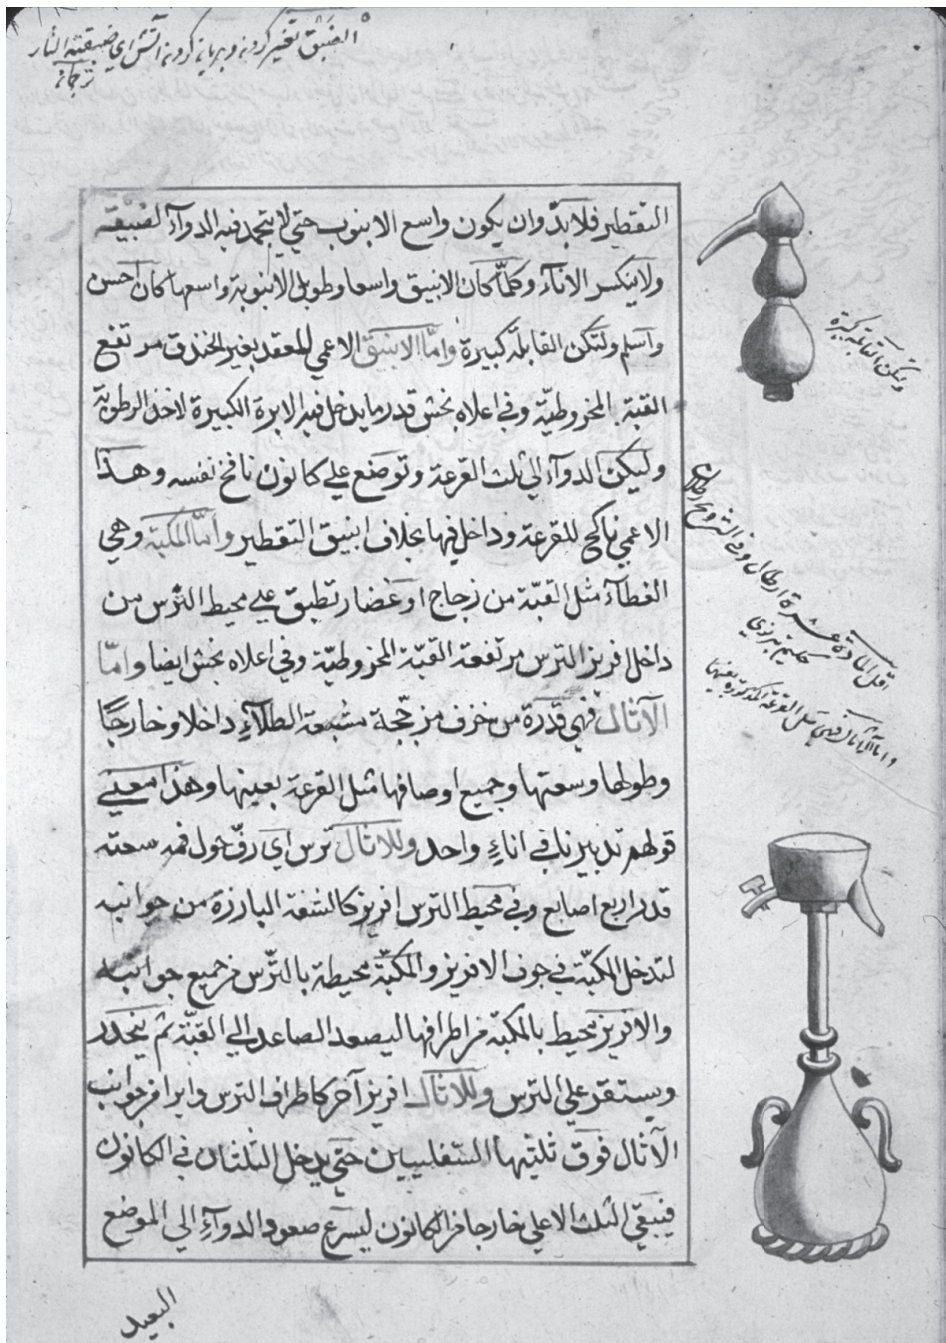 التقطير فلا بدّ وان يكون واسع الانبوب حتي لا يتجمد فيه الدوآء لضيقه
ولا ينكسر الاناء وكلمّا كان الانبيق واسعا وطويل الانبوبة واسعها كان احسن
واسلم ولتكن القابلة كبيرة وامّا الانبيق الاعمي للمعقد بغير الخندق مرتفع
القبة بالمخروطيّة وفي اعلاه بخش قدر ما يدخل فيه الابرة الكبيرة لاجل الرطوبة
وليكن الدوآء الي ثلث القرعة وتوضع علي كانون نافخ نفسه وهذا
الاعمي ناكح للقرعة وداخل فيها بخلاف انبيق التقطير وامّا المكبّة وهي
الغطآء مثل القبّة من زجاج او غضار تطبق علي محيط الترس من
داخل افريز الترس مرتفعة القبّة المخروطيّة وفي اعلاه بخش ايضا وامّا
الآثال فهي قدرة من خزف مزجّجة مشبعة الطلآء داخلا وخارجًا
وطولها وسعتها وجميع اوصافها مثل القرعة بعينها وهذا معني
قولهم تدبيرنا في اناءٍ واحد وللاثال ترس اي رفّ حول فمه سعته
قدر اربع اصابع وفي محيط الترس افريز كالشفة البارزة من جوانبه
لتدخل المكبّة في جوف الافريز والمكبّة محيطة بالتّرس من جميع جوانبه
والافريز محيط بالمكبّة من اطرافها ليصعد الصاعد الي القبّة ثم ينحدر
ويستقر علي الترس وللاثال افريز آخر كاطراف الترس دايرا من جوانب
الآثال فوق ثلثيها السّفليين حتي يدخل الثلثان في الكانون
فيبقي الثلث الاعلي خارجا من الكانون ليسرع صعود الدوآء الي الموضع
البعيد
ولتكن القابلة كبيرة
وامّا الآثال فهي مثل القرعة المذكورة بعينها